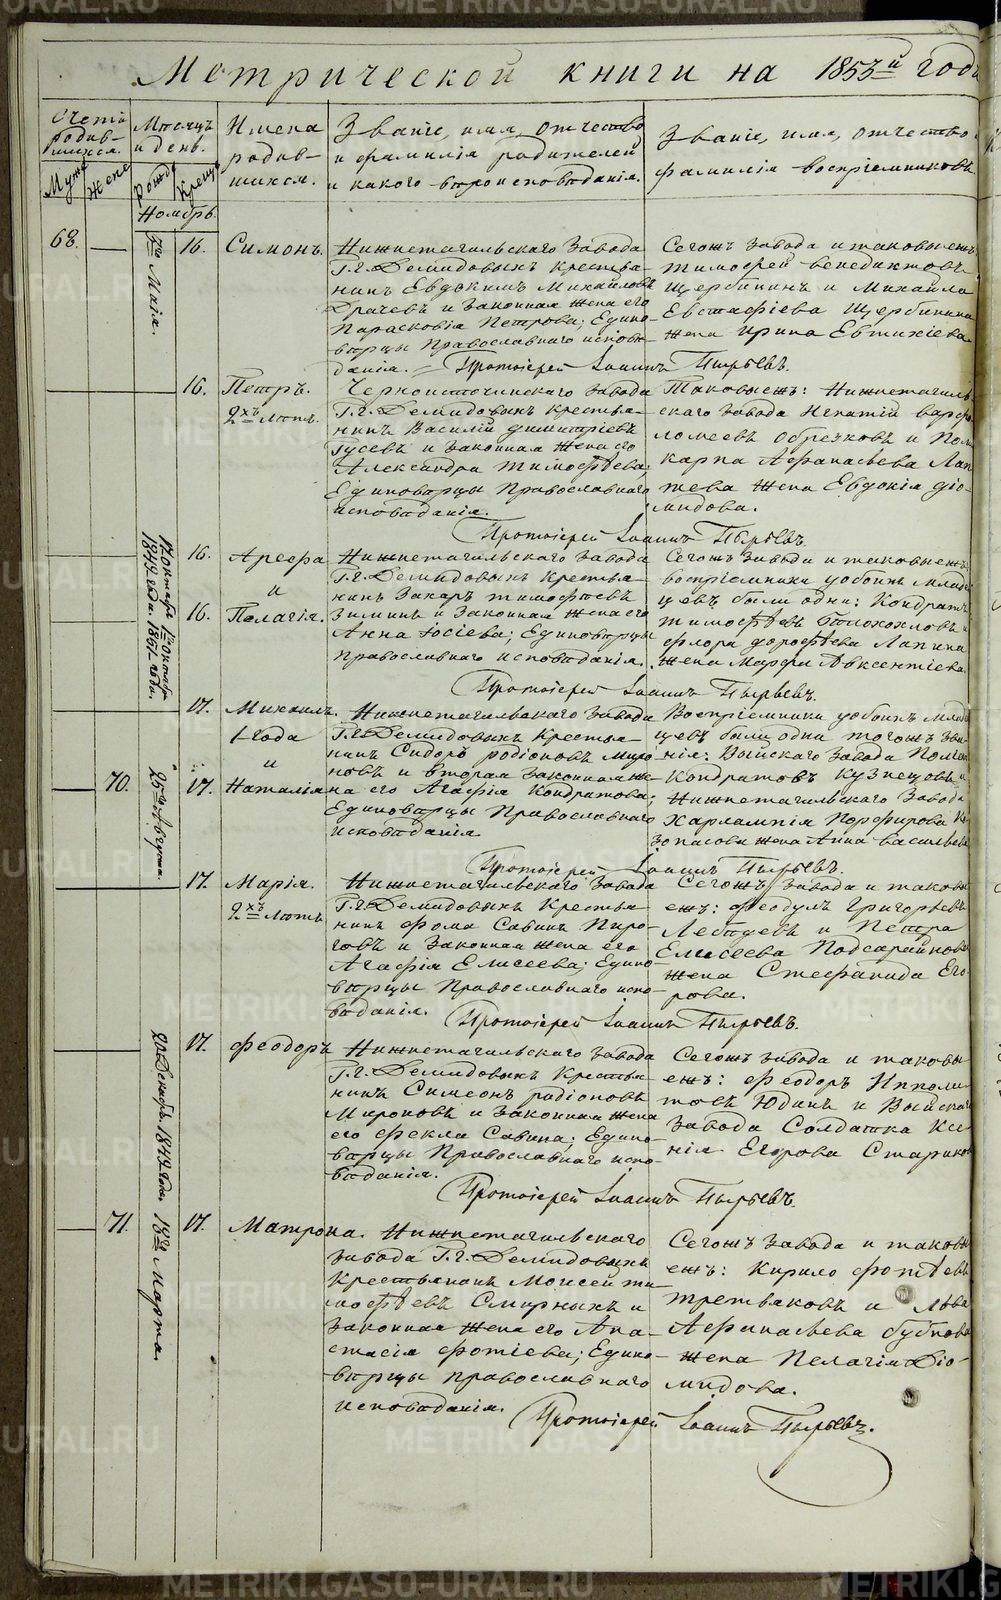 Метрической книги на 1853й годъ
Счетъ родив-
шихся.
Муж
Жене
Мѣсяцъ
и день.
Рожд
Крещ
Имена
родив-
шихся.
Званіе, имя, отчество
и фамилія родителей
и какого вѣроисповѣданія.
Званіе, имя, отчество
фамилія воспріемниковъ
Ноябрь.
68.
7го Маія.
16.
Симонъ.
Нижнетагильскаго завода
Г.г. Демидовыхъ крестья-
нинъ Евдокимъ Михайловъ
Драчевъ и законная жена его
Парасковія Петрова; Едино-
вѣрцы Православнаго исповѣ-
данія.
Сегожъ завода и таковыежъ
Тимофей Венедиктовъ
Щербининъ и Михайла
Евстафіева Щербинина
жена Ирина Евтихіева
Протоіерей Іоаннъ Пырьевъ.
16.
Петръ.
2хъ лѣтъ.
Черноисточинскаго завода
Г.г. Демидовыхъ крестья-
нинъ Василій Димитріевъ
Гусевъ и законная жена его
Александра Тимофѣева;
Единовѣрцы Православнаго
исповѣданія.
Таковыежъ: Нижнетагиль-
скаго завода Игнатій Варфо
ломеевъ Обрезковъ и Поли
карпа Афанасьева Лап
тева жена Евдокія Діо-
мидова.
Протоіерей Іоаннъ Пырьевъ.
17 октября 1го октября
1849 года. 1851 года.
16.
Арефа
и
16.
Пелагія.
Нижнетагильскаго завода
Г.г. Демидовыхъ крестья-
нинъ Захаръ Тимофѣевъ
Зиминъ и законная жена его
Анна Іосіева; Единовѣрцы
Православнаго исповѣданія.
Сегожъ завода и таковыежъ
воспріемники уобоихъ младен
цевъ были одни: Кондратъ
Тимофѣевъ и
Флора Дорофѣева Лапина
жена Марфа Авксентіева
Протоіерей Іоаннъ Пырьевъ.
17.
Михаилъ.
1 года
и
70.
25го Августа.
17.
Наталія
Нижнетагильскаго завода
Г.г. Демидовыхъ крестья-
нинъ Сидоръ Родіоновъ Миро
новъ и вторая законная же
на его Агафія Кондратова;
Единовѣрцы Православнаго
исповѣданія
Воспріемники уобоихъ младен
цевъ были одни тогожъ зва
нія: Выйскаго завода
Кондратовъ Кузнецовъ и
Нижнетагильскаго завода
Харлампія Порфирова Ко
жена Анна Васильева
Протоіерей Іоаннъ Пырьевъ.
17.
Марія.
2хъ лѣтъ
Нижнетагильскаго завода
Г.г. Демидовыхъ крестья-
нинъ Фома Савинъ Пиро-
говъ и законная жена его
Агафія Елисеева; Едино-
вѣрцы Православнаго испо-
вѣданія.
Сегожъ завода и таковы
ежъ: Феодулъ Григорьевъ
Лебедевъ и Петра
Елисеева Подсарайнова
жена Стефанида Его-
рова.
Протоіерей Іоаннъ Пырьевъ.
20 Декабря 1849 года.
17.
Феодоръ
Нижнетагильскаго завода
Г.г. Демидовыхъ крестья-
нинъ Симеонъ Родіоновъ
Мироновъ и законная жена
его Фекла Савина; Едино-
вѣрцы Православнаго испо-
вѣданія.
Сегожъ завода и таковы
ежъ: Феодоръ Ипполи
товъ Юдинъ и Выйскаго
завода Солдатка Ксе-
нія Егорова Стариков
Протоіерей Іоаннъ Пырьевъ.
71.
18го Марта.
17.
Матрона.
Нижнетагильскаго
завода Г.г. Демидовыхъ
крестьянинъ Моисей Ти-
мофѣевъ Смирныхъ и
законная жена его Ана-
стасія Фотіева; Едино-
вѣрцы Православнаго
исповѣданія.
Сегожъ завода и таковы
ежъ: Кирило Фотѣевъ
Третьяковъ и Льва
Афанасьева Бубнова
жена Пелагія Діо-
мидова.
Протоіерей Іоаннъ Пырьевъ.
METRIKI.GASO-URAL.RU